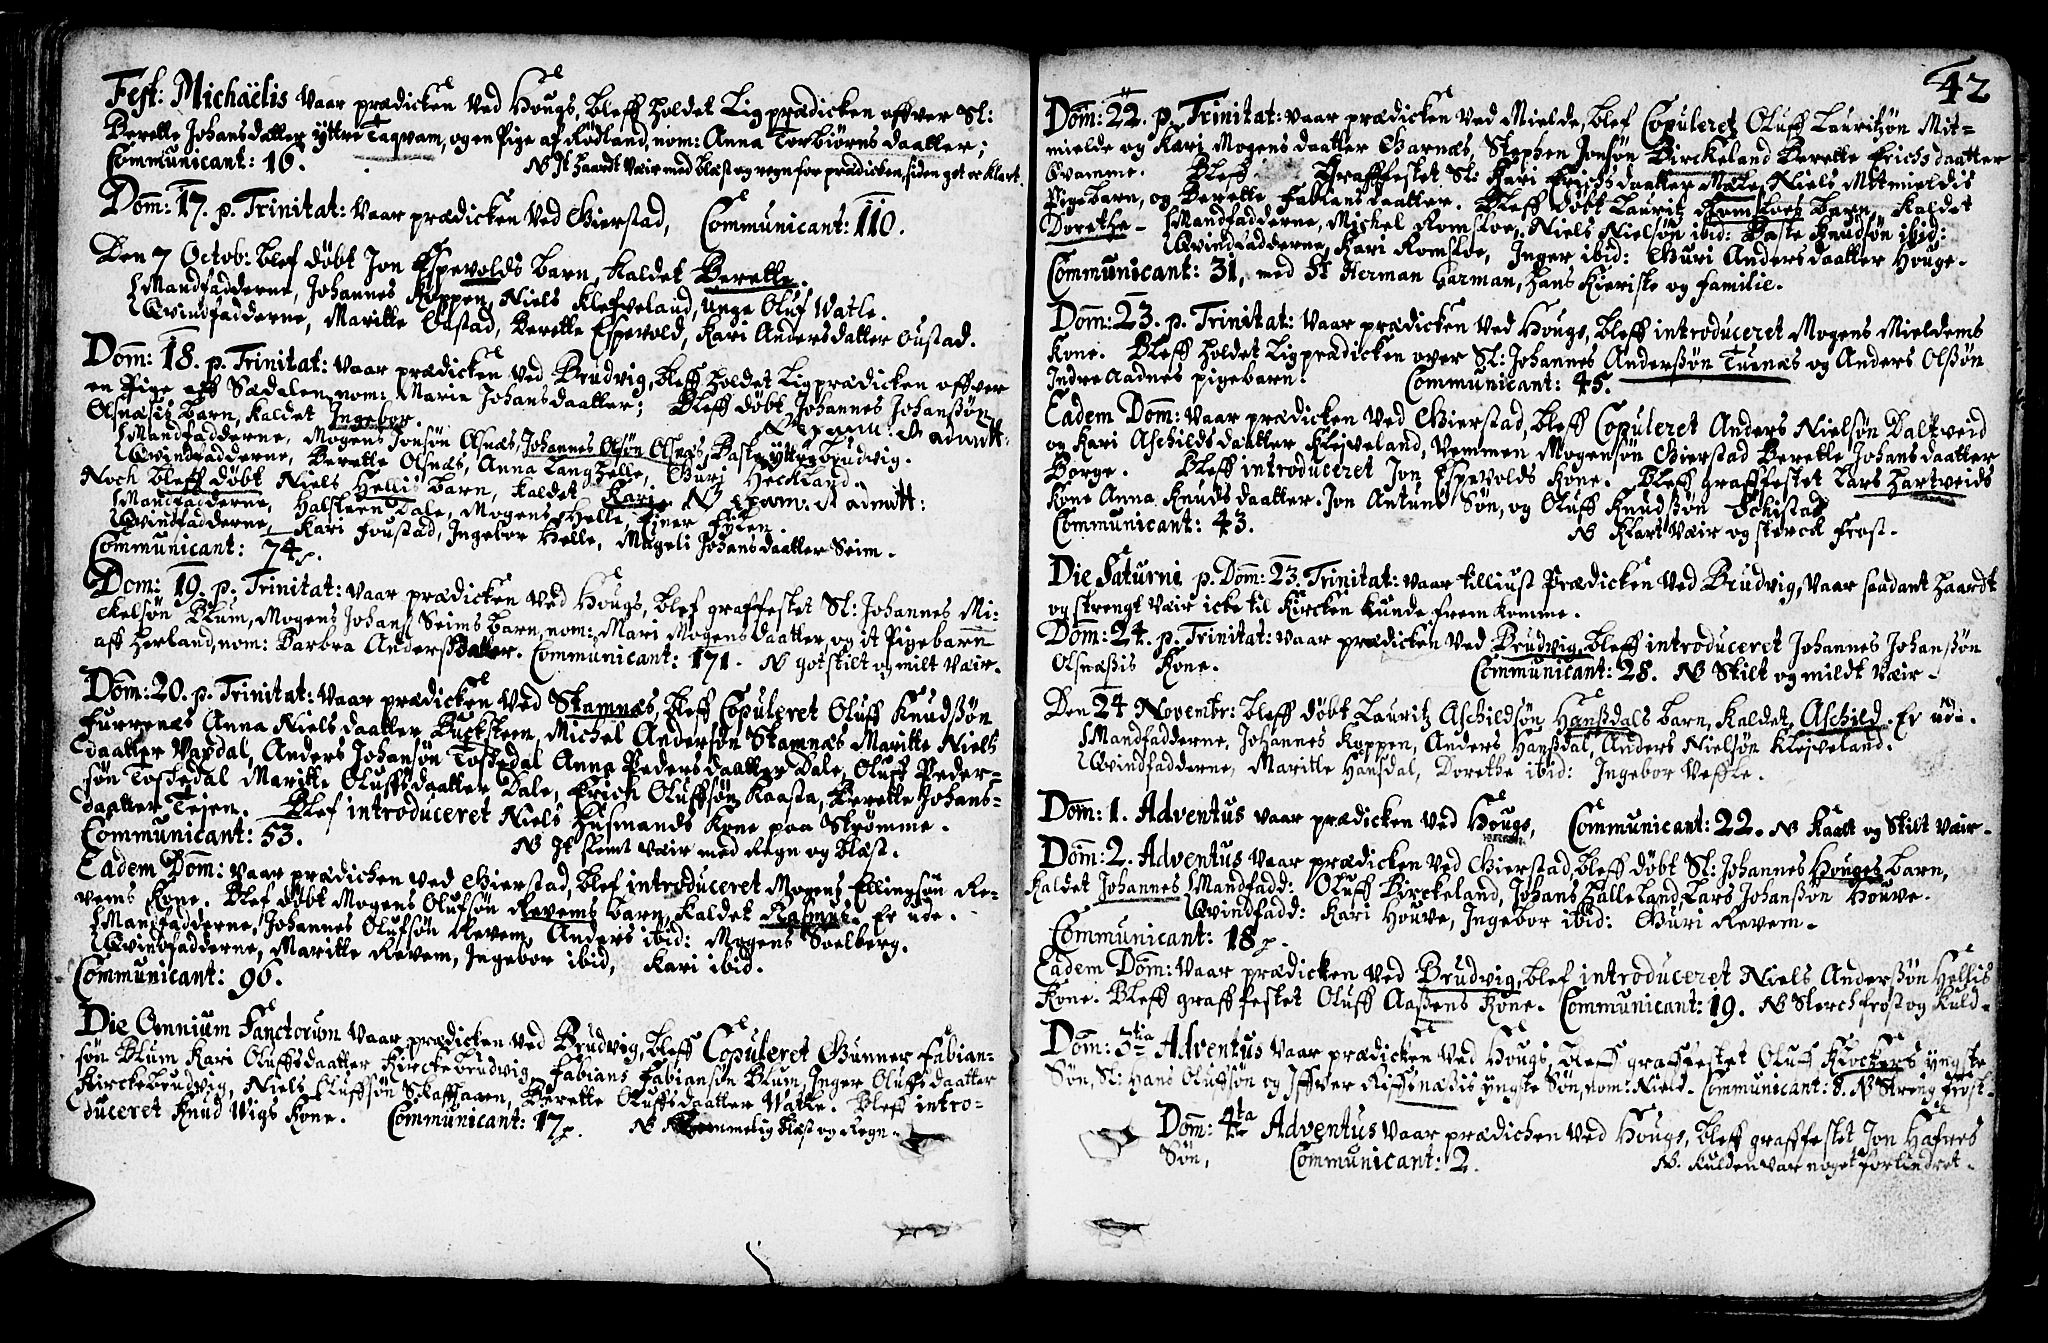 Fest: Michaëlis vaar prædicken ved Hougs, bleff holdet Ligprædicken offver Sl:
Berette Johansdatter yttre Taqvam, og en Pige af Rødland, nom: Anna Torbiørnsdaatter;
Communicant: 16. NB It haardt vær med blæst og regn for prædicken, siden got oc klart.
Dom: 17. p. Trinitat: vaar prædicken ved Gierstad, Communicant: 110.
Den 7 Octob: blef døbt Jon Espevolds barn, kaldet Berette.
Mandfadderne, Johannes Koppen, Niels Klefveland, unge Oluf Watle.
Qvindfadderne, Maritte Oustad, Berette Espevold, Kari Andersdatter Oustad.
Dom: 18. p. Trinitat: vaar prædicken ved Brudvig, bleff holdet Ligprædicken offver
en Pige aff Sædalen, nom: Marie Johansdaatter; Bleff døbt Johannes Johansøn
Olsnæsis barn, kaldet Ingebor. admitt:
Mandfadderne, Mogens Jonsøn Olsnæs, Johannes Olsøn Olsnæs, Baste yttre Brudvig.
Qvindfadderne, Berette Olsnæs, Anna Langhelle, Guri Heckland.
Noch bleff døbt Niels Helli barn, kaldet Kari. NB admitt:
Mandfadderne, Halsteen Dale, Mogens Helle, Einer Fylen.
Qvindfadderne, Kari Joustad, Ingebor Helle, Mageli Johansdaatter Seim.
Communicant: 74.
Dom: 19. p. Trinitat: vaar prædicken ved Hougs, blef graffestet Sl: Johannes Mi-
ckelsøn Blum, Mogens Johans Seims barn, nom: Mari Mogensdaatter, og it Pigebarn
aff Herland, nom: Barbra Andersdatter. Communicant: 171. NB got stilt og milt vær.
Dom: 20. p. Trinitat: vaar prædicken ved Stamnæs, bleff Copuleret Oluff Knudssøn
Furrenæs Anna Nielsdaatter Bucksteen, Michel Andersøn Stamnæs Maritte Niels
daatter Vaxdal, Anders Johansøn Toskedal Anna Pedersdaatter Dale, Oluff Peder-
søn Toskedal Maritte Oluffsdaatter Dale, Erich Oluffsøn Kaasta, Berette Johans-
daatter Teien. Blef introduceret Niels Husmands Kone paa Strømme.
Communicant: 53. NB It slemt vær med Regn og blæst.
Eadem Dom: vaar prædichen ved Gierstad, blef introduceret Mogens Ellingsøn Re-
vems Kone. Blef døbt Mogens Olufsøn Revems barn, kaldet Rasmus. Er ude.
Mandfadderne, Johannes Olufsøn Revem, Anders ibid: Mogens Soelberg.
Qvindfadderne, Maritte Revem, Ingebor ibid, Kari ibid.
Communicant: 96.
Die Omnium Sanctorum vaar prædicken ved Brudvig, bleff Copuleret Gunner Fabian-
søn Blum Kari Oluffsdaatter Kirckebrudvig, Fabians Fabiansøn Blum, Inger Oluffsdaatter
Kirckebrudvig, Niels Oluffsøn Skafthaaen, Berette Oluffsdaatter Watle. Bleff intro-
duceret Knud Wigs Kone. Communicant: 17. NB blæst og Regn
42
Dom: 22. p. Trinitat: vaar prædicken ved Mielde, blef Copuleret Oluff Lauritzøn Mit-
mielde og Kari Mogensdaatter Garnæs, Stephen Jonsøn Birckeland Berette Erichsdaatter
Qvamme. Bleff Graffestet Sl: Kari Erichsdaatter Mæle, Niels Mitmieldis
Pigebarn, og Berette Fabiansdaatter. Bleff døbt Lauritz Romsloes barn, kaldet
Dorethe - Mandfadderne, Michel Romsloe, Niels Nielsøn ibid: Baste Knudsøn ibid:
Qvindfadderne, Kari Romsloe, Inger ibid: Guri Andersdaatter Houge.
Communicant: 31, med Sr Herman Garman, hans Kieriste og familie.
Dom: 23. p. Trinitat: vaar prædicken ved Hougs, bleff introduceret Mogens Mieldems
Kone. Bleff holdet Ligprædicken over Sl: Johannes Anderssøn Tunæs og Anders Olssøn
Indre Aadnes pigebarn. Communicant: 45.
Eadem Dom: vaar prædicken ved Gierstad, bleff Copuleret Anders Nielsøn Daltveid
og Kari Aschildsdaatter Kleiveland, Vemmen Mogensøn Gierstad Berette Johansdaatter
Borge. Bleff introduceret Jon Espevolds Kone. Bleff graffestet Lars Hartveids
Kone Anna Knudsdaatter. Jon Antuns Søn, og Oluff Knudssøn Tchistad
Communicant: 43. NB Klart Vær og sterck Frost.
Die Saturni p. Dom: 23. Trinitat: vaar tilliust Prædicken ved Brudvig, vaar saadant haardt
og strengt vær icke til Kircken kunde freem komme.
Dom: 24. p. Trinitat: vaar prædicken ved Brudvig, bleff introduceret Johannes Johanssøn
Olsnæssis Kone. Communicant: 28. NB Stilt og mildt vær.
Den 24 Novembr: bleff døbt Lauritz Aschildsøn Hanssdals barn, kaldet Aschild. Er ude.
Mandfadderne, Johannes Koppen, Anders Hanssdal, Anders Nielsøn Kleiveland.
Qvindfadderne, Maritte Hansdal, Dorethe ibid: Ingebor Veffle.
Dom: 1. Adventus vaar prædicken ved Hougs, Communicant: 22. NB Kaalt og Stilt vær.
Dom: 2. Adventus vaar prædicken ved Gierstad, bleff døbt Sl: Johannes Houges barn,
kaldet Johannes Mandfadd: Oluff Birckeland, Johans Halleland, Lars Johanssøn Houve.
Qvindfadd: Kari Houve, Ingebor ibid: Guri Revem.
Communicant: 18.
Eadem Dom: vaar prædicken ved Brudvig, blef introduceret Niels Anderssøn Hellis
Kone. Bleff graffestet Oluff Aassens Kone. Communicant: 19. NB Sterch frost og kuld.
Dom: 3tia Adventus vaar prædicken ved Hougs, bleff graffestet Oluff Klockers yngste
Søn, Sl: Hans Oluffsøn og Iffver Riffsnæsis yngste Søn, nom: Nield. Communicant: 8. NB Streng frost.
Dom: 4ta Adventus vaar prædichen ved Hougs, bleff graffestet Jon Hafnes
Søn, Communicant: 2. NB. Kulden var noget forlindret.